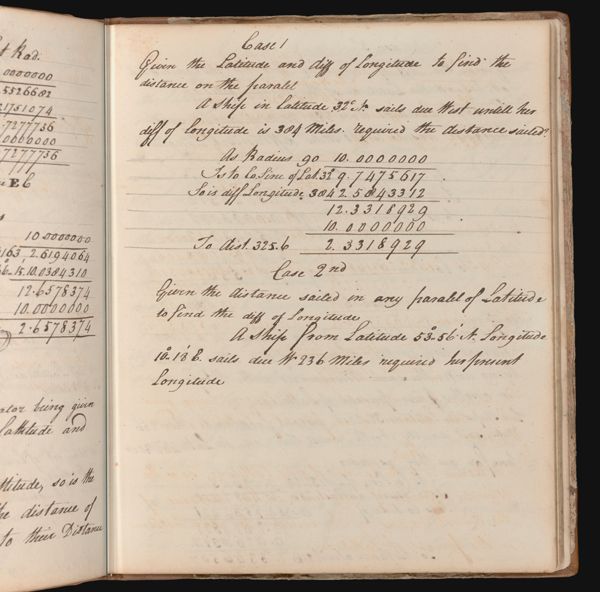 t Rad.
0000000
5526682
21751074
.7277756
0000000
7277756
E 6
10.0000000
163 2.6194064
15.10.0384310
12.6578374
10.0000000
2.6578374
ator being given
Lattitude and
ttitude, so is the
he distance of
to their Distance
Case 1
Given the Latitude and diff of Longitude to find the
distance on the paralel
A Ship in Latitude 32° N. sails due West untill her
diff of longitude is 384 Miles required the distance sailed?
As Radius 90 10.0000000
Is to Co Sine of Lat. 32° 9.7475617
So is diff Longitude 384 2.5843312
12.3318929
10.0000000
To dist 325.6 2.3318929
Case 2nd
Given the distance sailed in any paralel of Latitude
to find the diff of Longitude
A Ship from Latitude 53°.56' N. Longitude
10°.18' E. sails due W 236 Miles required her present
Longitude